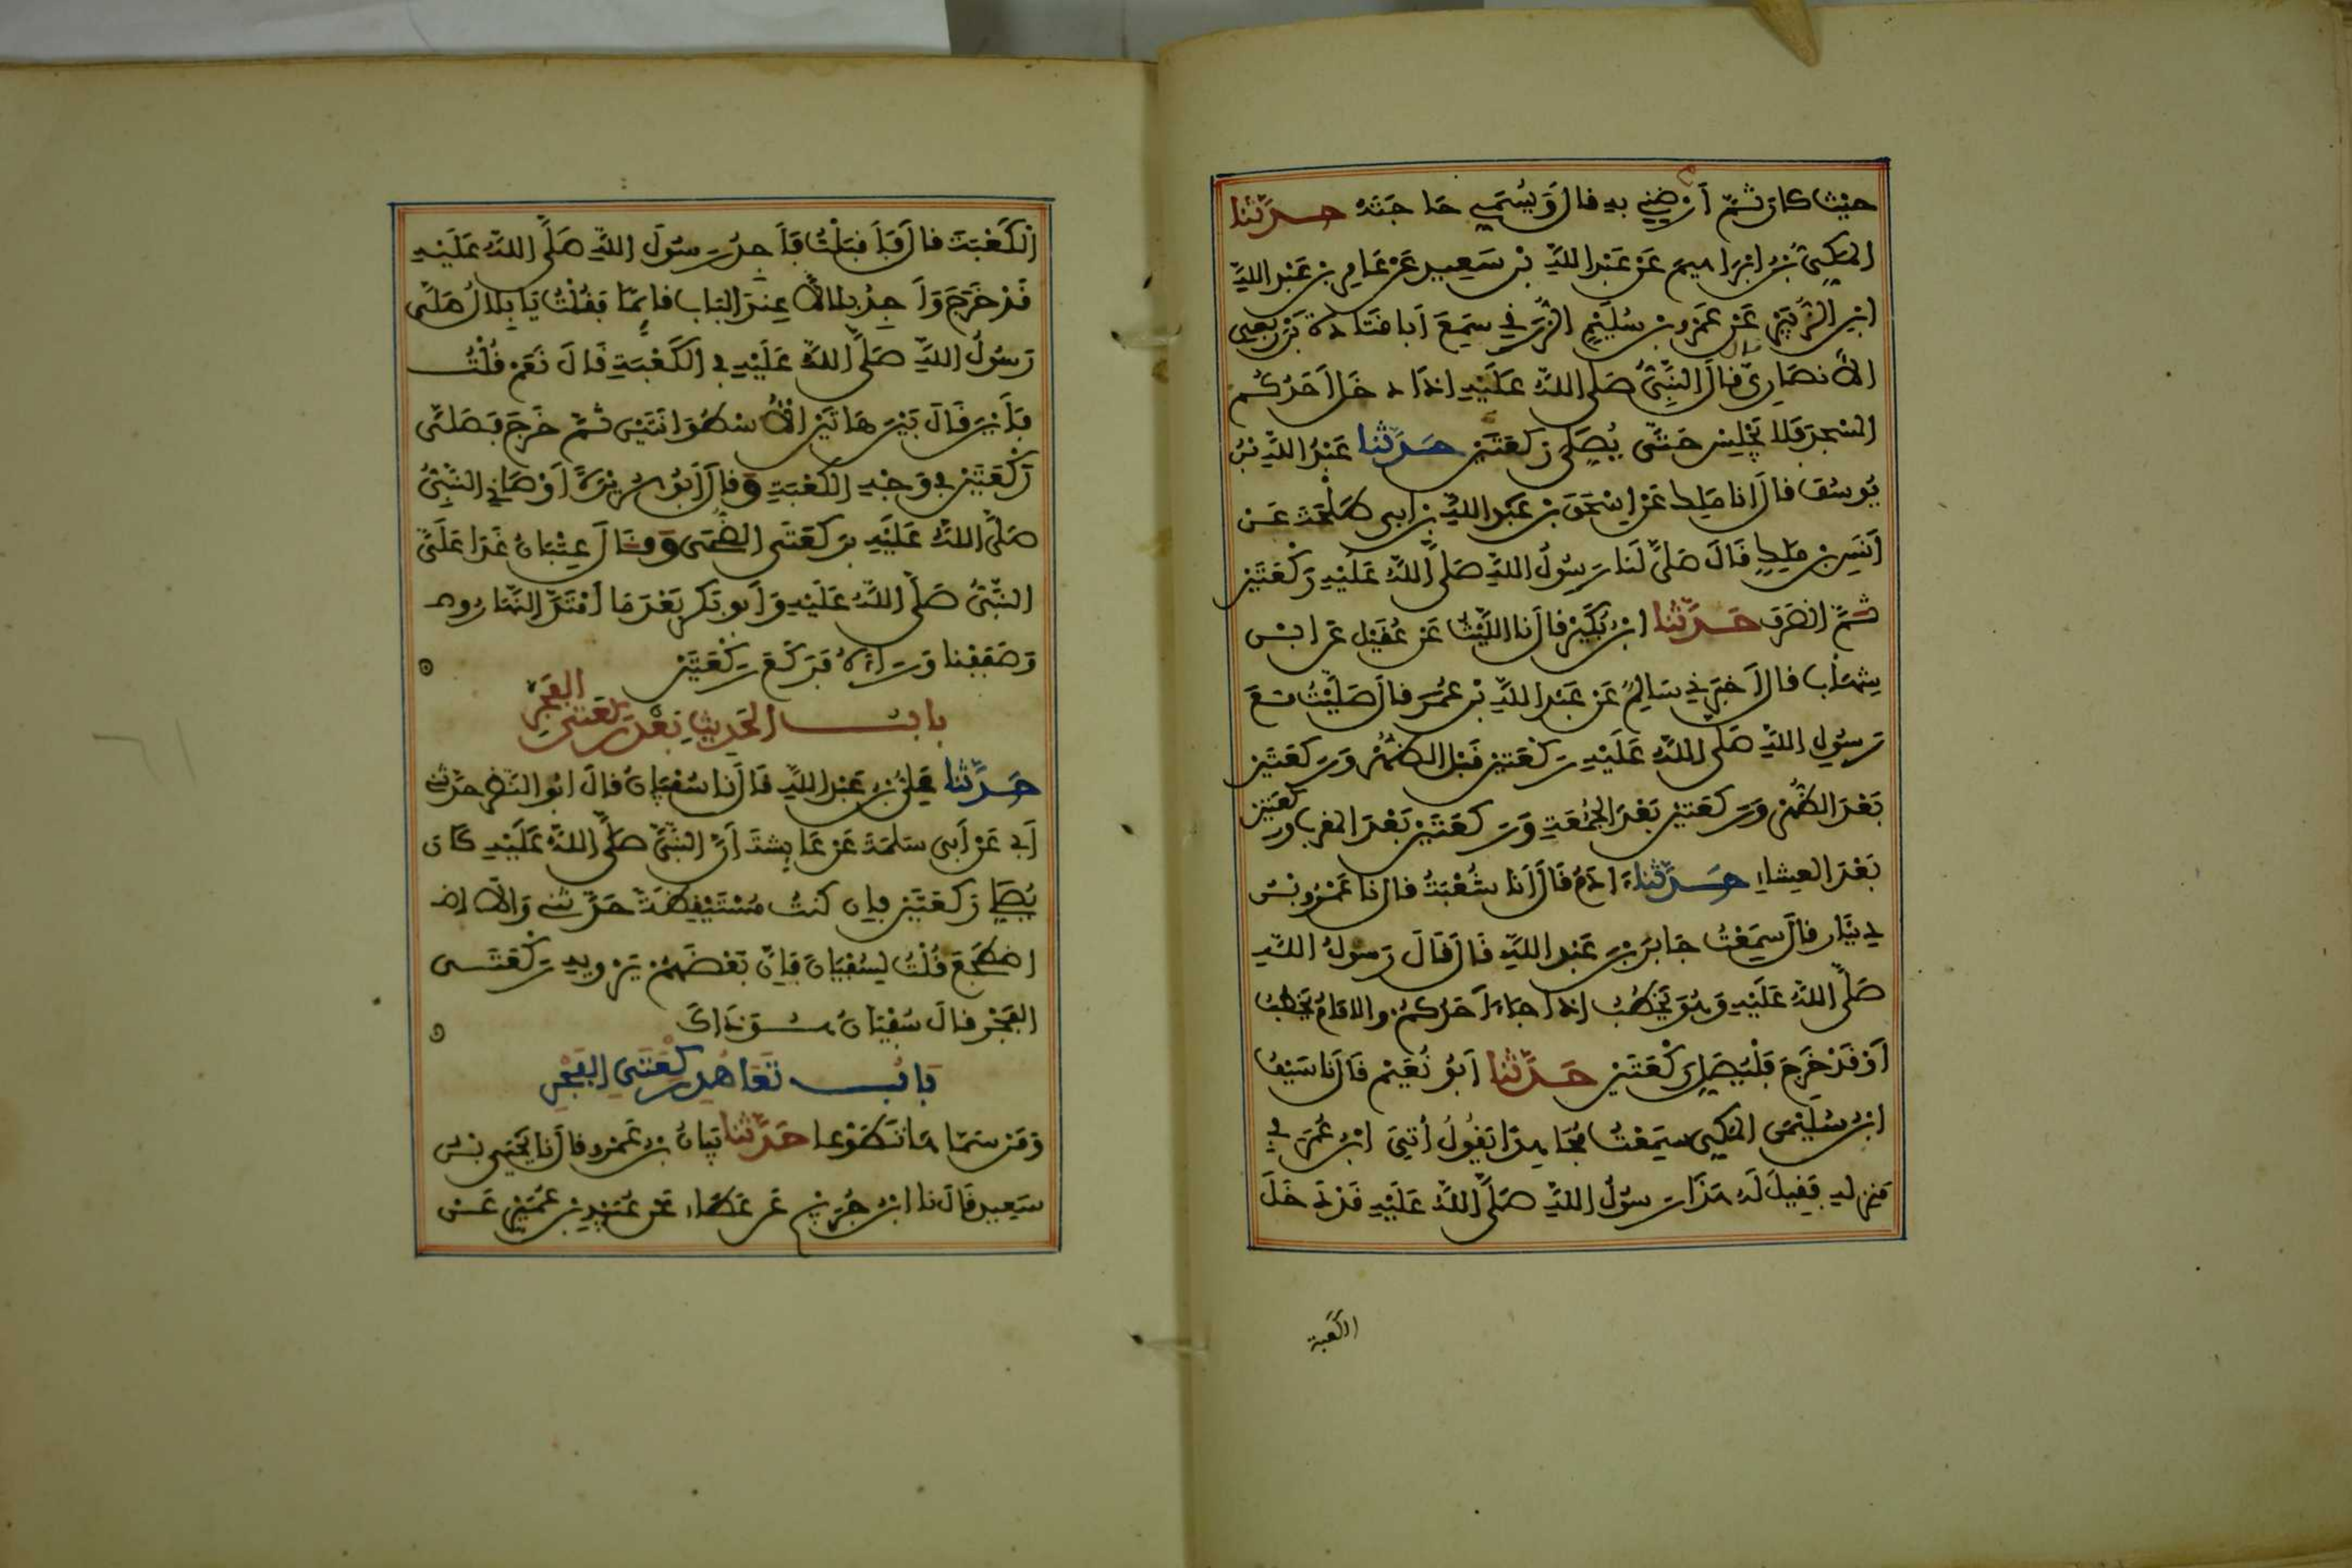 حيث كان ثم أرضني به قال ويسمي حاجته حدثنا
المكي بن ابراهيم عن عبد الله بن سعيد عن عامر بن عبد الله
ابن الزبير عن عمرو بن سليم الزرقي سمع أبا قتادة بن ربعي
الأنصاري قال قال النبي صلى الله عليه إذا دخل أحدكم
المسجد فلا يجلس حتى يصلي ركعتين حدثنا عبد الله بن
يوسف قال أنا ملك عن إسحق بن عبد الله بن أبي طلحة عن
أنس بن ملك قال صلى لنا رسول الله صلى الله عليه ركعتين
ثم انصرف حدثنا ابن بكير قال نا الليث عن عقيل عن ابن
شهاب قال أخبرني سالم عن عبد الله بن عمر قال صليت مع
رسول الله صلى الله عليه ركعتين قبل الظهر وركعتين
بعد الظهر وركعتين بعد الجمعة وركعتين بعد المغرب وركعتين
بعد العشاء حدثنا ءادم قال أنا شعبة قال نا عمرو بن
دينار قال سمعت جابر بن عبد الله قال قال رسول الله
صلى الله عليه وهو يخطب إذا جاء أحدكم والامام يخطب
أو قد خرج فليصل ركعتين حدثنا أبو نعيم قال نا سيف
ابن سليمن المكي سمعت مجاهدا يقول أتي ابن عمر في
منزله فقيل له هذا رسول الله صلى الله عليه قد دخل
الكعبة
الكعبة قال فأقبلت فأجد رسول الله صلى الله عليه
قد خرج وأجد بلالا عند الباب قائما فقلت يا بلال صلى
رسول الله صلى الله عليه في الكعبة قال نعم قلت
فأين قال بين هاتين الأسطوانتين ثم خرج فصلى
ركعتين في وجه الكعبة وقال أبو هريرة أوصاني النبي
صلى الله عليه بركعتي الضحى وقال عتبان غدا علي
النبي صلى الله عليه وأبو بكر بعد ما امتد النهار
وصففنا وراءه فركع ركعتين
باب الحديث بعد ركعتي الفجر
حدثنا علي بن عبد الله قال نا سفيان قال أبو النضر حدثني
أبي عن أبي سلمة عن عائشة أن النبي صلى الله عليه كان
يصلي ركعتين فإن كنت مستيقظة حدثني والا
اضطجع قلت لسفيان فإن بعضهم يرويه ركعتي
الفجر قال سفيان هو ذاك
باب تعاهد ركعتي الفجر
ومن سماها تطوعا حدثنا بيان بن عمرو قال نا يحيى بن
سعيد قال نا ابن جريج عن عطاء عن عبيد بن عمير عن